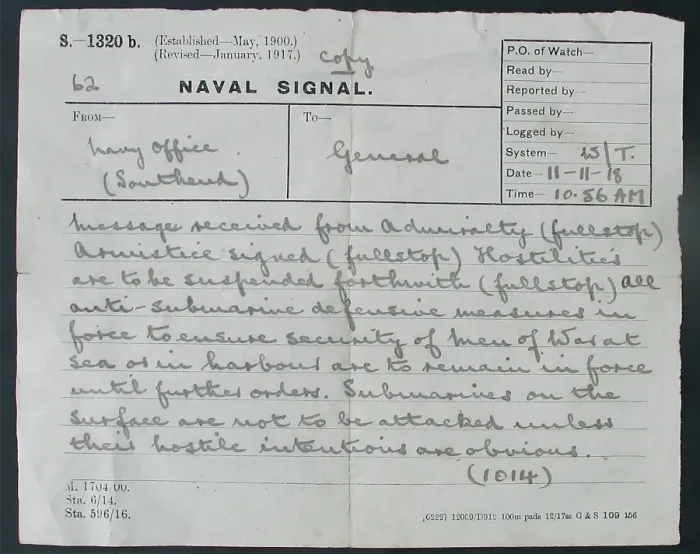 S.—1320 b. (Established—May, 1900.)
(Revised—January, 1917.)
copy
62
NAVAL SIGNAL.
P.O. of Watch—
Read by—
Reported by—
Passed by—
Logged by—
System— W/T.
Date— 11-11-18
Time— 10.56 AM
FROM— Navy Office (Southend)
TO— General
Message received from Admiralty (fullstop)
Armistice signed (fullstop) Hostilities
are to be suspended forthwith (fullstop) all
anti-submarine defensive measures in
force to ensure security of Men of War at
sea or in harbour are to remain in force
until further orders. Submarines on the
surface are not to be attacked unless
their hostile intentions are obvious.
(1014)
M. 1704/00.
Sta. 6/14.
Sta. 596/16.
G & S 109 156